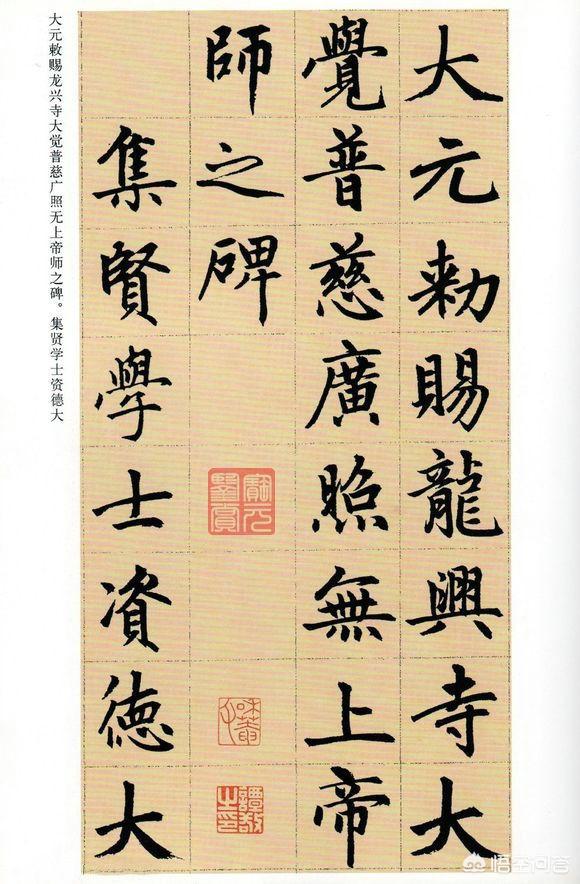 大元敕賜龍興寺大
覺普慈廣照無上帝
師之碑
譚敬之印
集賢學士資德大
大元敕赐龙兴寺大觉普慈广照无上帝师之碑。集贤学士资德大
悟空问答